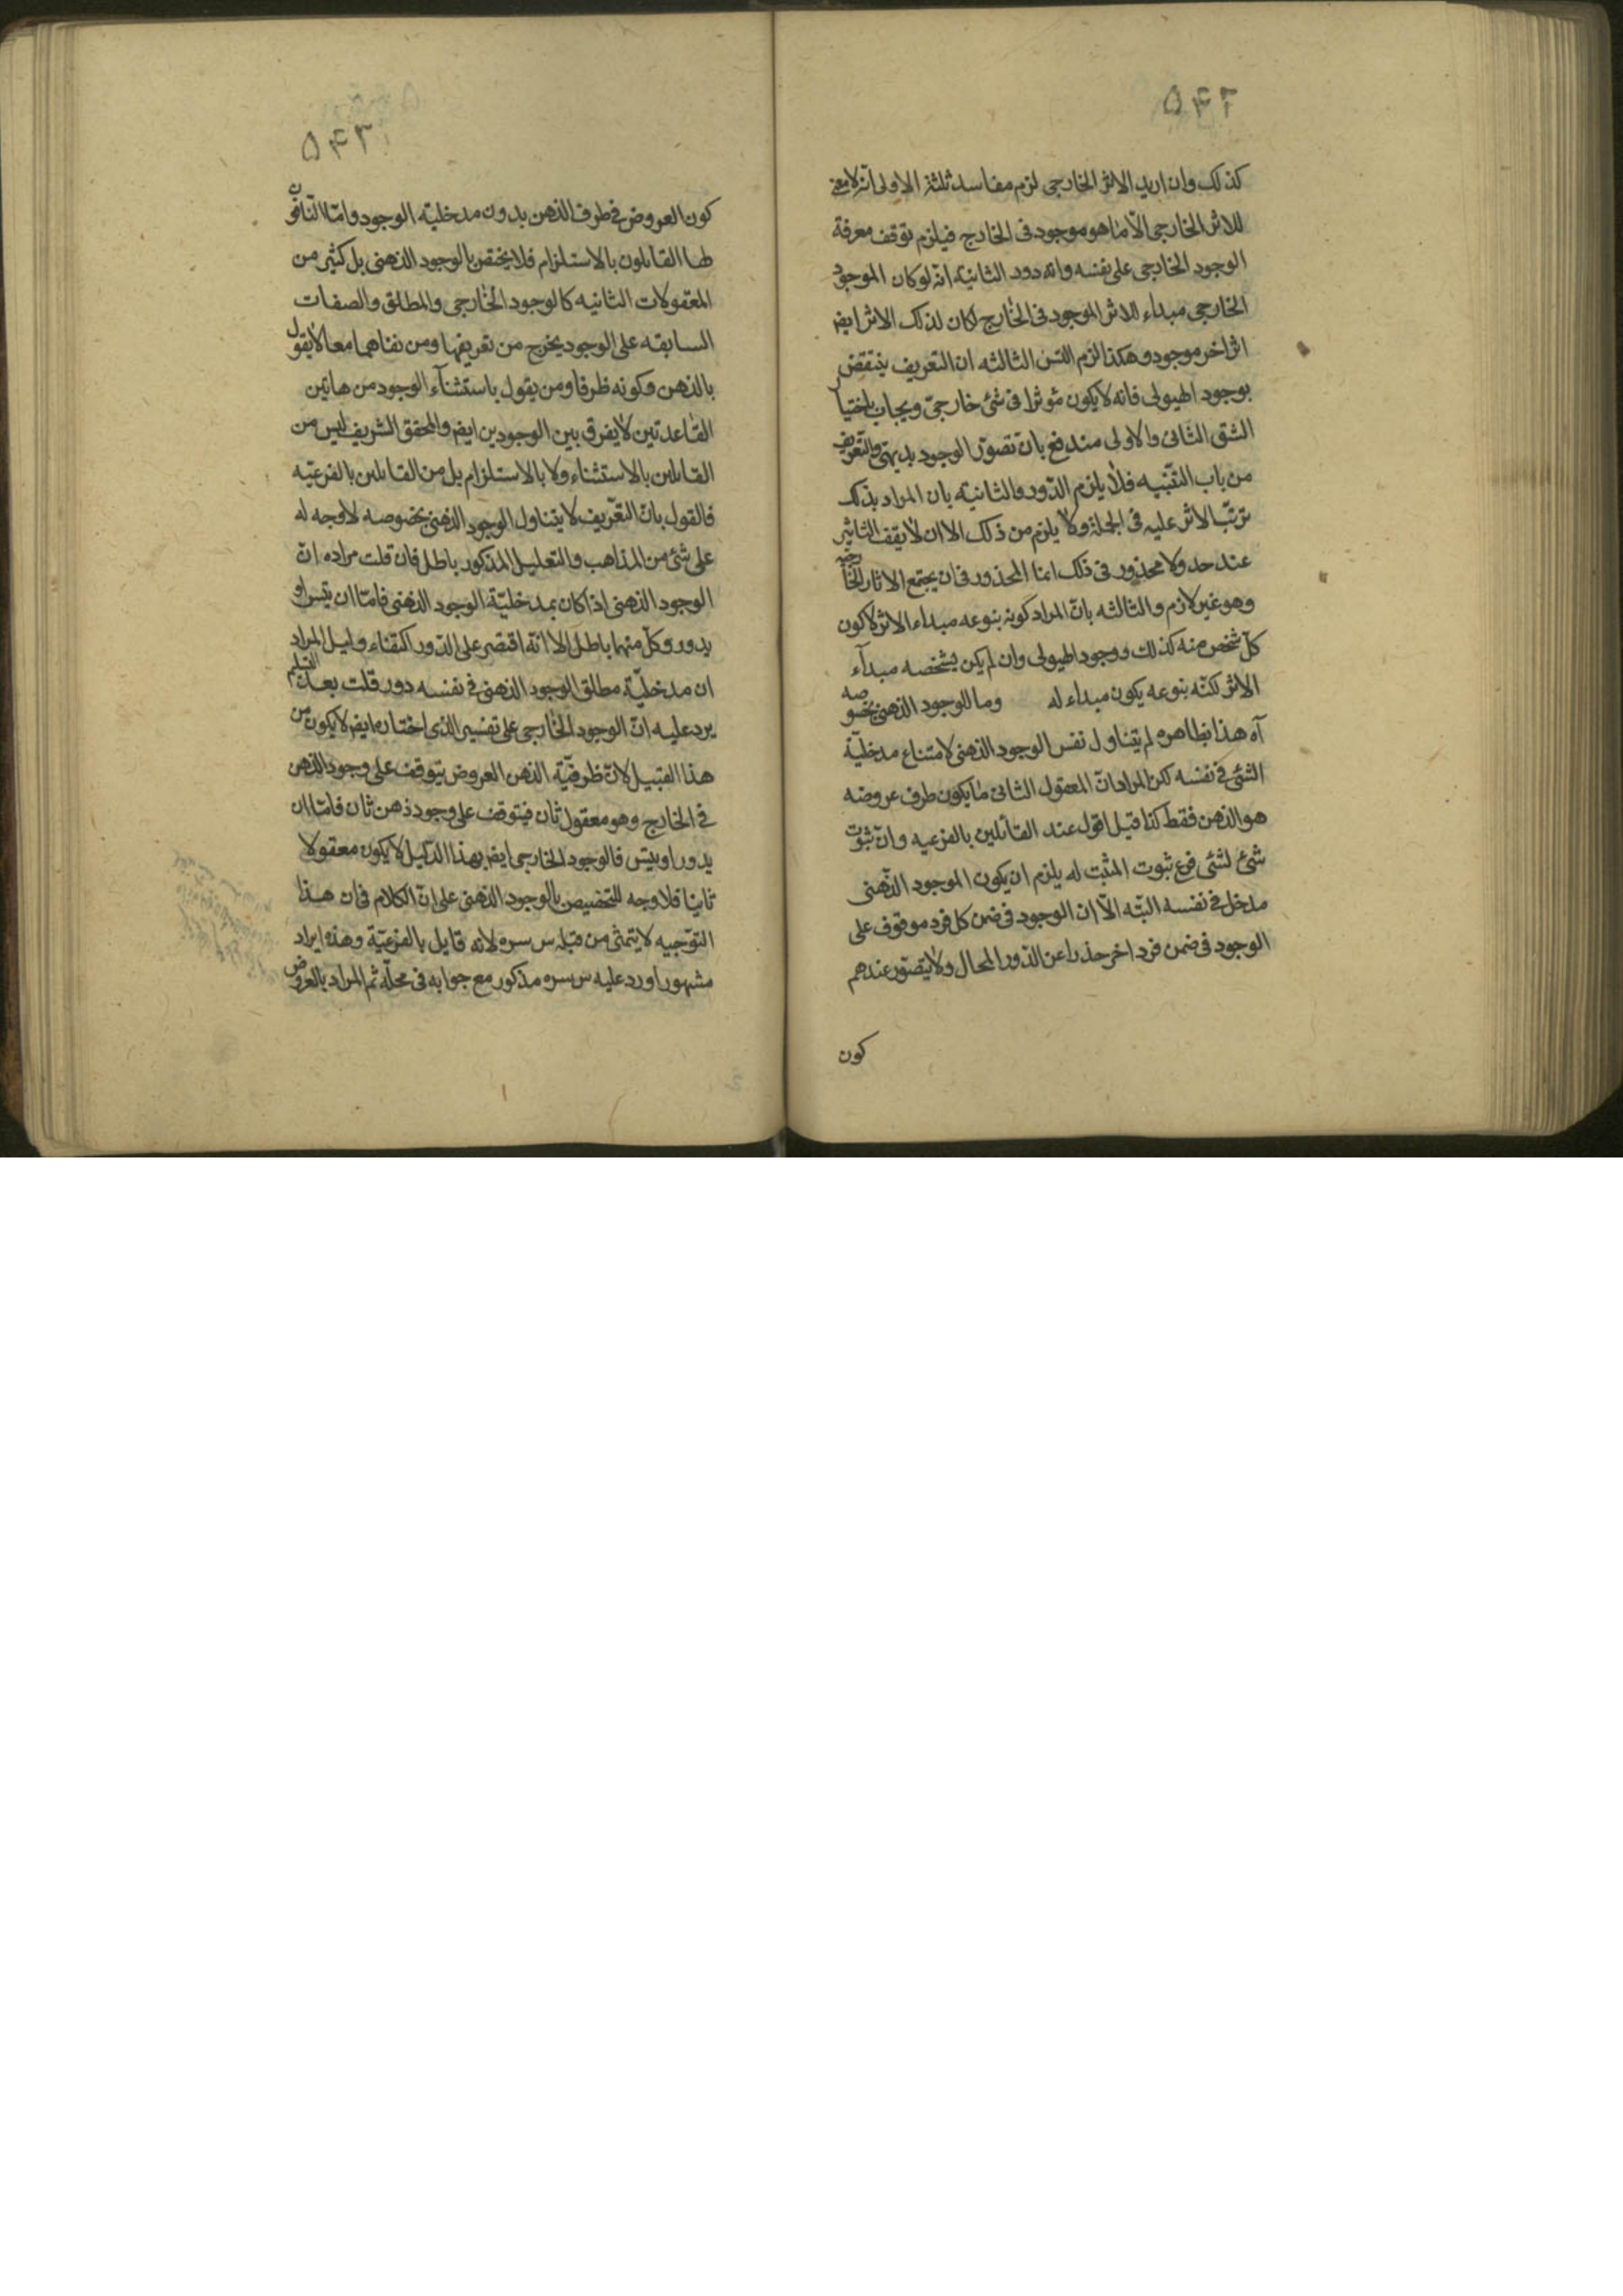 ۵۴۲
كذلك وان اريد الاثر الخارجى لزم مفاسد ثلثة الاولى انه لا معنى
للاثر الخارجى الّا ما هو موجود فى الخارج فيلزم توقف معرفة
الوجود الخارجى على نفسه وانه دور الثانية انه لو كان الموجود
الخارجى مبداء للاثر الموجود فى الخارج لكان لذلك الاثر ايضا
اثر اخر موجود وهكذا لزم التس الثالثه ان التعريف ينتقض
بوجود الهيولى فانه لا يكون مؤثرا فى شئ خارجىّ ويجاب باختيار
الشق الثانى والاولى مندفع بان تصوّر الوجود بديهى والتعريف
من باب التنبيه فلا يلزم الدّور والثانية بان المراد بذلك
ترتّب الاثر عليه فى الجملة ولا يلزم من ذلك الا ان لا يقف التاثير
عند حد ولا محذور فى ذلك انما المحذور فى ان يجتمع الاثار الخارجية
وهو غير لازم والثالثه بانّ المراد كونه بنوعه مبداء الاثر لا كون
كلّ شخص منه كذلك ووجود الهيولى وان لم يكن بشخصه مبدآء
الاثر لكنّه بنوعه يكون مبداء له وما للوجود الذهنى بخصوصه
آه هذا بظاهره لم يتناول نفس الوجود الذهنى لامتناع مدخليّة
الشئ فى نفسه لكن المراد انّ المعقول الثانى ما يكون ظرف عروضه
هو الذهن فقط كذا قيل اقول عند القائلين بالفرعيه وان ثبوت
شئ لشئ فرع ثبوت المثبت له يلزم ان يكون الموجود الذّهنى
مدخل فى نفسه البتّه الّا ان الوجود فى ضمن كل فرد موقوف على
الوجود فى ضمن فرد اخر حذرا عن الدّور المحال ولا يتصّور عندهم
كون
۵۴۳
كون العروض فى ظرف الذهن بدون مدخليّة الوجود وامّا النّافون
لها القائلون بالاستلزام فلا يختص بالوجود الذهنى بل كثير من
المعقولات الثانيه كالوجود الخارجى والمطلق والصفات
السابقه على الوجود يخرج من تعريفها ومن نفاهما معا لا يقول
بالذهن وكونه ظرفا ومن يقول باستثنآء الوجود من هاتين
القاعدتين لا يفرق بين الوجودين ايضا والمحقق الشريف ليس من
القايلين بالاستثناء ولا بالاستلزام بل من القايلين بالفرعيّه
فالقول بانّ التعّريف لا يتناول الوجود الذهنى بخصوصه لا وجه له
على شئ من المذاهب والتعليل المذكور باطل فان قلت مراده انّ
الوجود الذهنى اذا كان بمدخليّة الوجود الذهنى فامّا ان يتس او
يدور وكلّ منهما باطل الا انّه اقتصر على الدّور اكتفاء وليس المراد
ان مدخليّة مطلق الوجود الذهنى فى نفسه دور قلت بعد التسليم
يرد عليه انّ الوجود الخارجى على تفسير الذى اختاره ايضا لا يكون من
هذا القبيل لانّ ظرفيّة الذهن العروض يتوقف على وجود الذهن
فى الخارج وهو معقول ثان فيتوقف على وجود ذهن ثان فامّا ان
يدور او يتس فالوجود الخارجى ايضا بهذا الدّليل لا يكون معقولا
ثانيا فلا وجه للتخصيص بالوجود الذهنى على انّ الكلام فى ان هذا
التوّجيه لا يتمشى من قبله س سره لانه قايل بالفرعيّة وهذه ايراد
مشهور اورد عليه س سره مذكور مع جوابه فى محلّه ثم المراد بالعروض